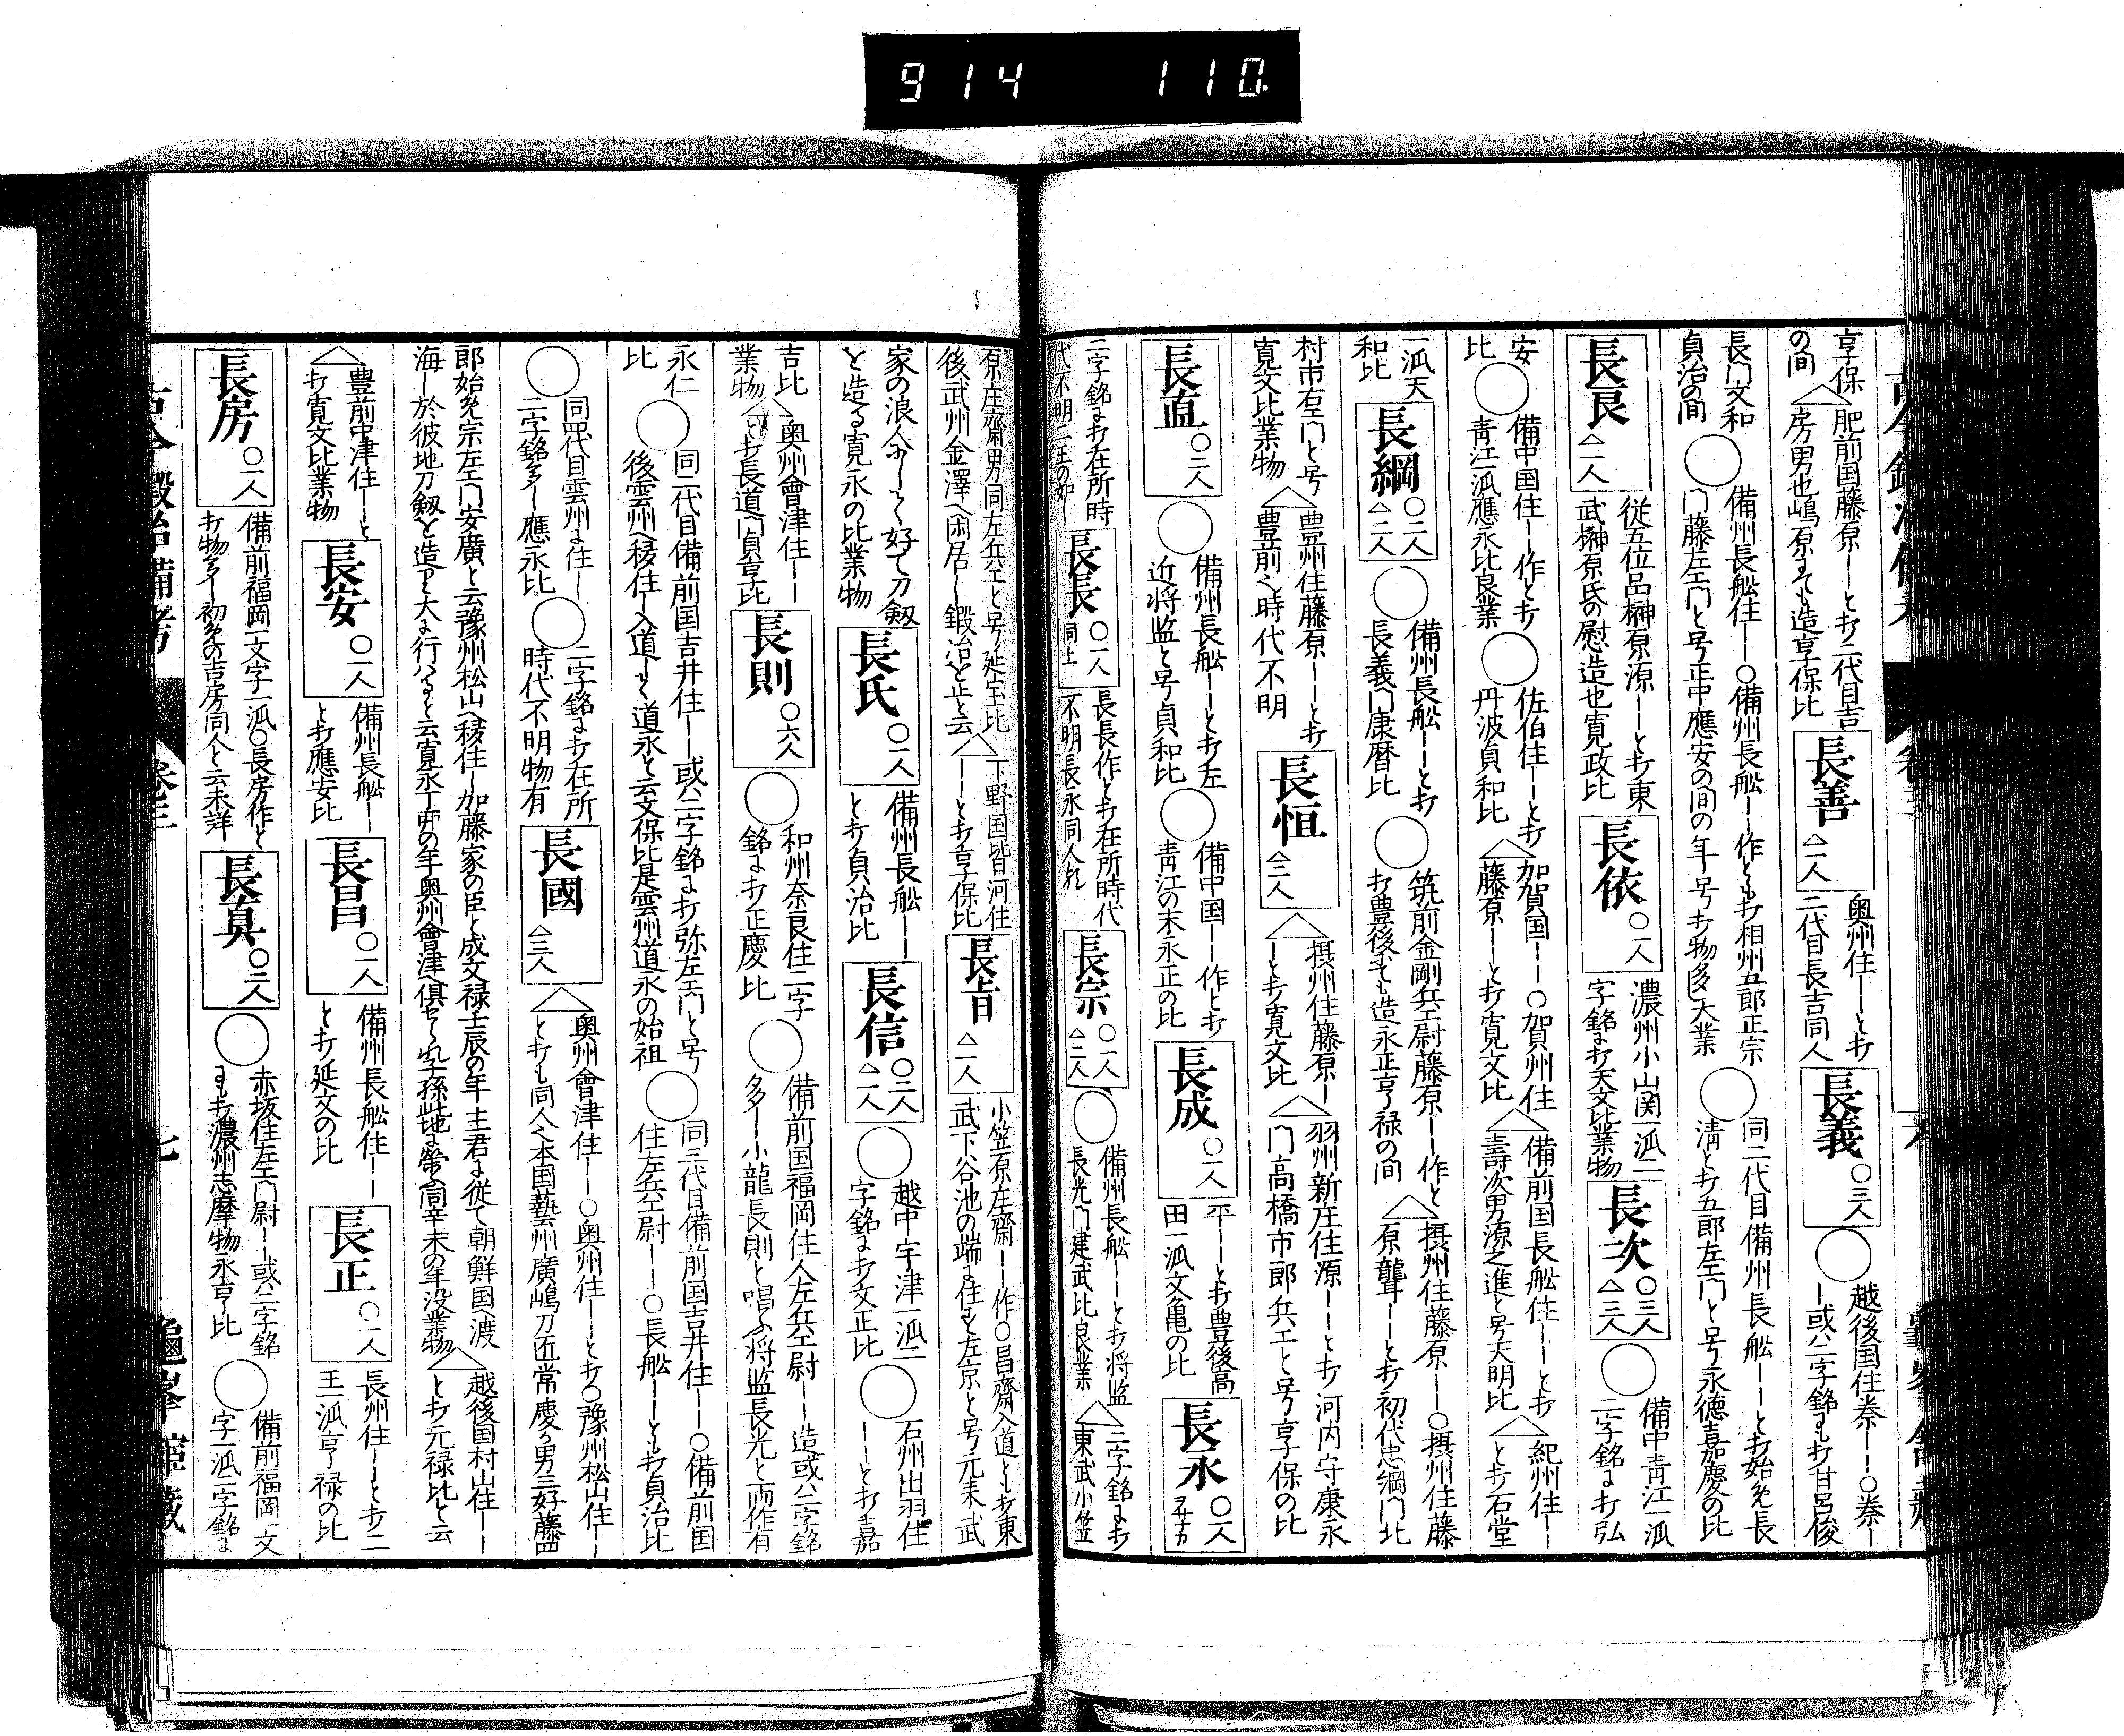 914 110
亨保
の間
△肥前国藤原――とオ二代目吉
房男也嶋原にても造亨保比
長善 △二人
奥州住――とオ
二代目長吉同人
長義 ○三人
○越後国住桊――○桊―
―或ハ二字銘にもオ甘呂俊
長門文和
貞治の間
○備州長舩住――○備州長舩――作ともオ相州五郎正宗
門藤左エ門と号正中應安の間の年号オ物多し大業
○同二代目備州長舩――とオ始め長
清とオ五郎左エ門と号永徳嘉慶の比
長良 △一人
従五位呂榊原源――とオ東
武榊原氏の慰造也寛政比
長依 ○一人
濃州小山関一派二
字銘にオ天文比業物
長次 ○三人 △三人
○備中青江一派
二字銘にオ弘
安
比
○備中国住―作とオ
青江一派應永比良業
○佐伯住――とオ
丹波貞和比
△加賀国――○賀州住
藤原――とオ寛文比
△備前国長舩住――とオ
壽次男源之進と号天明比
△紀州住―
とオ石堂
一派天
和比
長綱 ○二人 △二人
○備州長舩――とオ
長義門康暦比
○筑前金剛兵エ尉藤原――作と
オ豊後にても造永正亨禄の間
△摂州住藤原――○摂州住藤
原聾――とオ初代忠綱門北
村市右エ門と号
寛文比業物
△豊州住藤原――とオ
豊前と時代不明
長恒 △三人
△摂州住藤原―
――とオ寛文比
△羽州新庄住源――とオ河内守康永
門高橋市郎兵エと号亨保の比
長直 ○二人
○備州長舩――とオ左
近将監と号貞和比
○備中国――作とオ
青江の末永正の比
長成 ○一人
平――とオ豊後高
田一派文亀の比
長永 ○一人 ヲサカ
二字銘にオ在所時
代不明二王の如―
長長 ○一人 同上
長長作とオ在所時代
不明長永同人れ
長宗 ○一人 △二人
○備州長舩――とオ将監
長光門建武比良業
△二字銘にオ
東武小笠
原庄齋男同左兵エと号延宝比
後武州金澤へ閑居―鍛冶を止と云
△下野国皆河住
――とオ亨保比
長旨 △一人
小笠原庄齋――作○昌齋入道ともオ東
武下谷池の端に住す左京と号元来武
家の浪人にして好て刀劔
を造る寛永の比業物
長氏 ○一人
備州長舩――
とオ貞治比
長信 ○三人 △一人
○越中宇津一派二
字銘にオ文正比
○石州出羽住
――とオ嘉
吉比
業物
△奥州會津住――
とオ長道門貞享比
長則 ○六人
○和州奈良住二字
銘にオ正慶比
○備前国福岡住人左兵エ尉――造或ハ二字銘
多―小龍長則と唱ふ将監長光と両作有
永仁
比
○同二代目備前国吉井住――或ハ二字銘にオ弥左エ門と号
後雲州へ移住―入道して道永と云文保比是雲州道永の始祖
○同三代目備前国吉井住――○備前国
住左兵エ尉――○長舩――ともオ貞治比
○同四代目雲州に住―
二字銘多―應永比
○二字銘にオ在所
時代不明物有
長國 △三人
△奥州會津住――○奥州住――とオ○豫州松山住――
とオも同人也本国藝州廣嶋刀匠常慶男三好藤四
郎始め宗左エ門安廣と云豫州松山へ移住―加藤家の臣と成文禄壬辰の年主君に従て朝鮮国へ渡
海―於彼地刀劔を造りて大に行ハると云寛永丁卯の年奥州會津へ倶せら子孫此地に榮ふ同辛未の年没業物
△越後国村山住――
とオ元禄比と云
△豊前中津住――と
オ寛文比業物
長安 ○一人
備州長舩――
とオ應安比
長昌 ○一人
備州長舩住――
とオ延文の比
長正 ○一人
長州住――とオ二
王一派亨禄の比
長房 ○一人
備前福岡一文字一派○長房作と
オ物多―初めの吉房同人と云未詳
長真 ○二人
○赤坂住左エ門尉――或ハ二字銘
にもオ濃州志摩物永亨―比
○備前福岡一文
字一派一字銘に
古今鍛冶備考 巻三 七 龜峯館藏